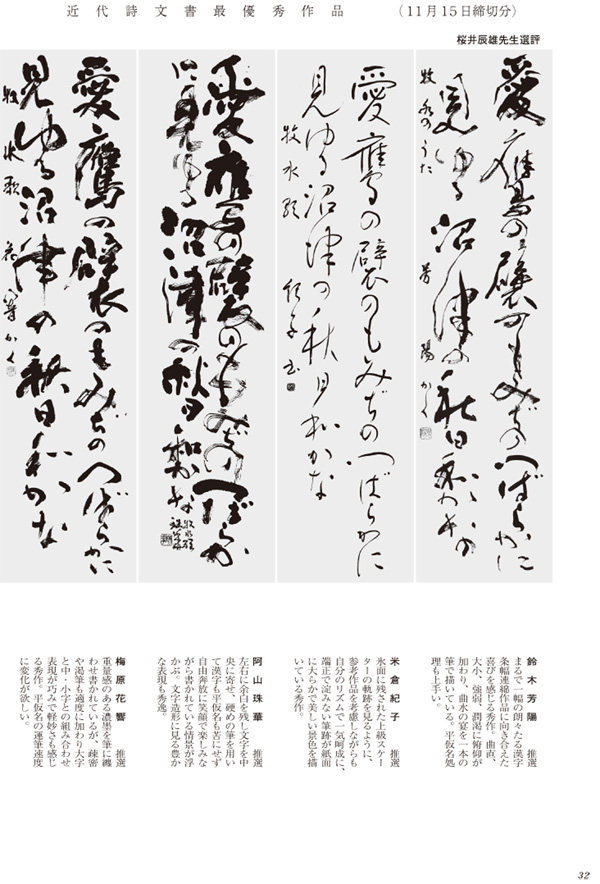 近代詩文書最優秀作品　（11月15日締切分）
桜井辰雄先生選評
愛鷹の襞のもみぢのつばらかに
見ゆる沼津の秋日和かな
牧水のうた　芳陽かく
愛鷹の襞のもみぢのつばらかに
見ゆる沼津の秋日和かな
牧水歌
愛鷹の襞のもみぢのつばらか
に見ゆる沼津の秋日和かな
愛鷹の襞のもみぢのつばらかに
見ゆる沼津の秋日和かな
牧水歌　花響かく
鈴木芳陽　推選
まるで一幅の朗々たる漢字
条幅連綿作品に向き合えた
喜びを感じる秀作。曲直、
大小、強弱、潤渇に俯仰が
加わり、曲水の宴を一本の
筆で描いている。平仮名処
理も上手い。
米倉紀子　推選
氷面に残された上級スケー
ターの軌跡を見るように、
参考作品を考慮しながらも
自分のリズムで一気呵成に、
端正で淀みない筆跡が紙面
に大らかで美しい景色を描
いている秀作。
阿山珠華　推選
左右に余白を残し文字を中
央に寄せ、硬めの筆を用い
て漢字も平仮名も苦にせず
自由奔放に笑顔で楽しみな
がら書かれている情景が浮
かぶ。文字造形に見る豊か
な表現も秀逸。
梅原花響　推選
重量感のある濃墨を筆に纏
わせ書かれているが、疎密
や渇筆も適度に加わり大字
と中・小字との組み合わせ
表現が巧みで軽妙さも感じ
る秀作。平仮名の運筆速度
に変化が欲しい。
32